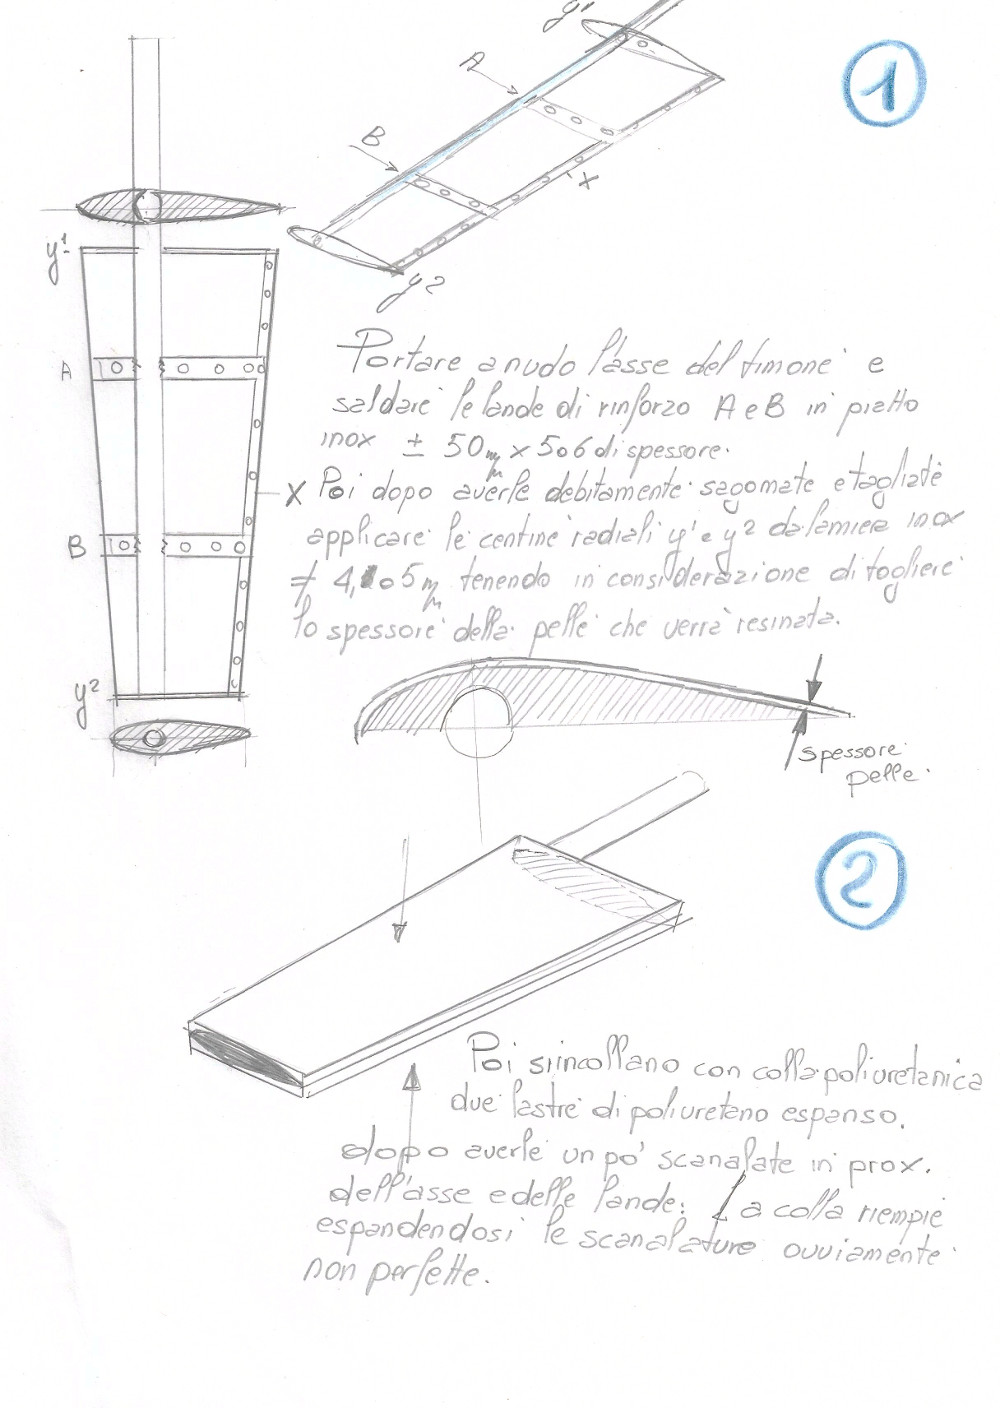 y¹
1
A
B
X
y²
y¹
A
X
B
y²
Portare a nudo l'asse del timone e
saldare le lande di rinforzo A e B in piatto
inox ± 50 mm x 5 o 6 di spessore.
Poi dopo averle debitamente sagomate e tagliate
applicare le centine radiali y¹ e y² da lamiera inox
≠ 4, o 5 mm tenendo in considerazione di togliere
lo spessore della pelle che verrà resinata.
spessore
pelle.
2
Poi si incollano con colla poliuretanica
due lastre di poliuretano espanso.
dopo averle un po' scanalate in prox.
dell'asse e delle lande: La colla riempie
espandendosi le scanalature ovviamente
non perfette.